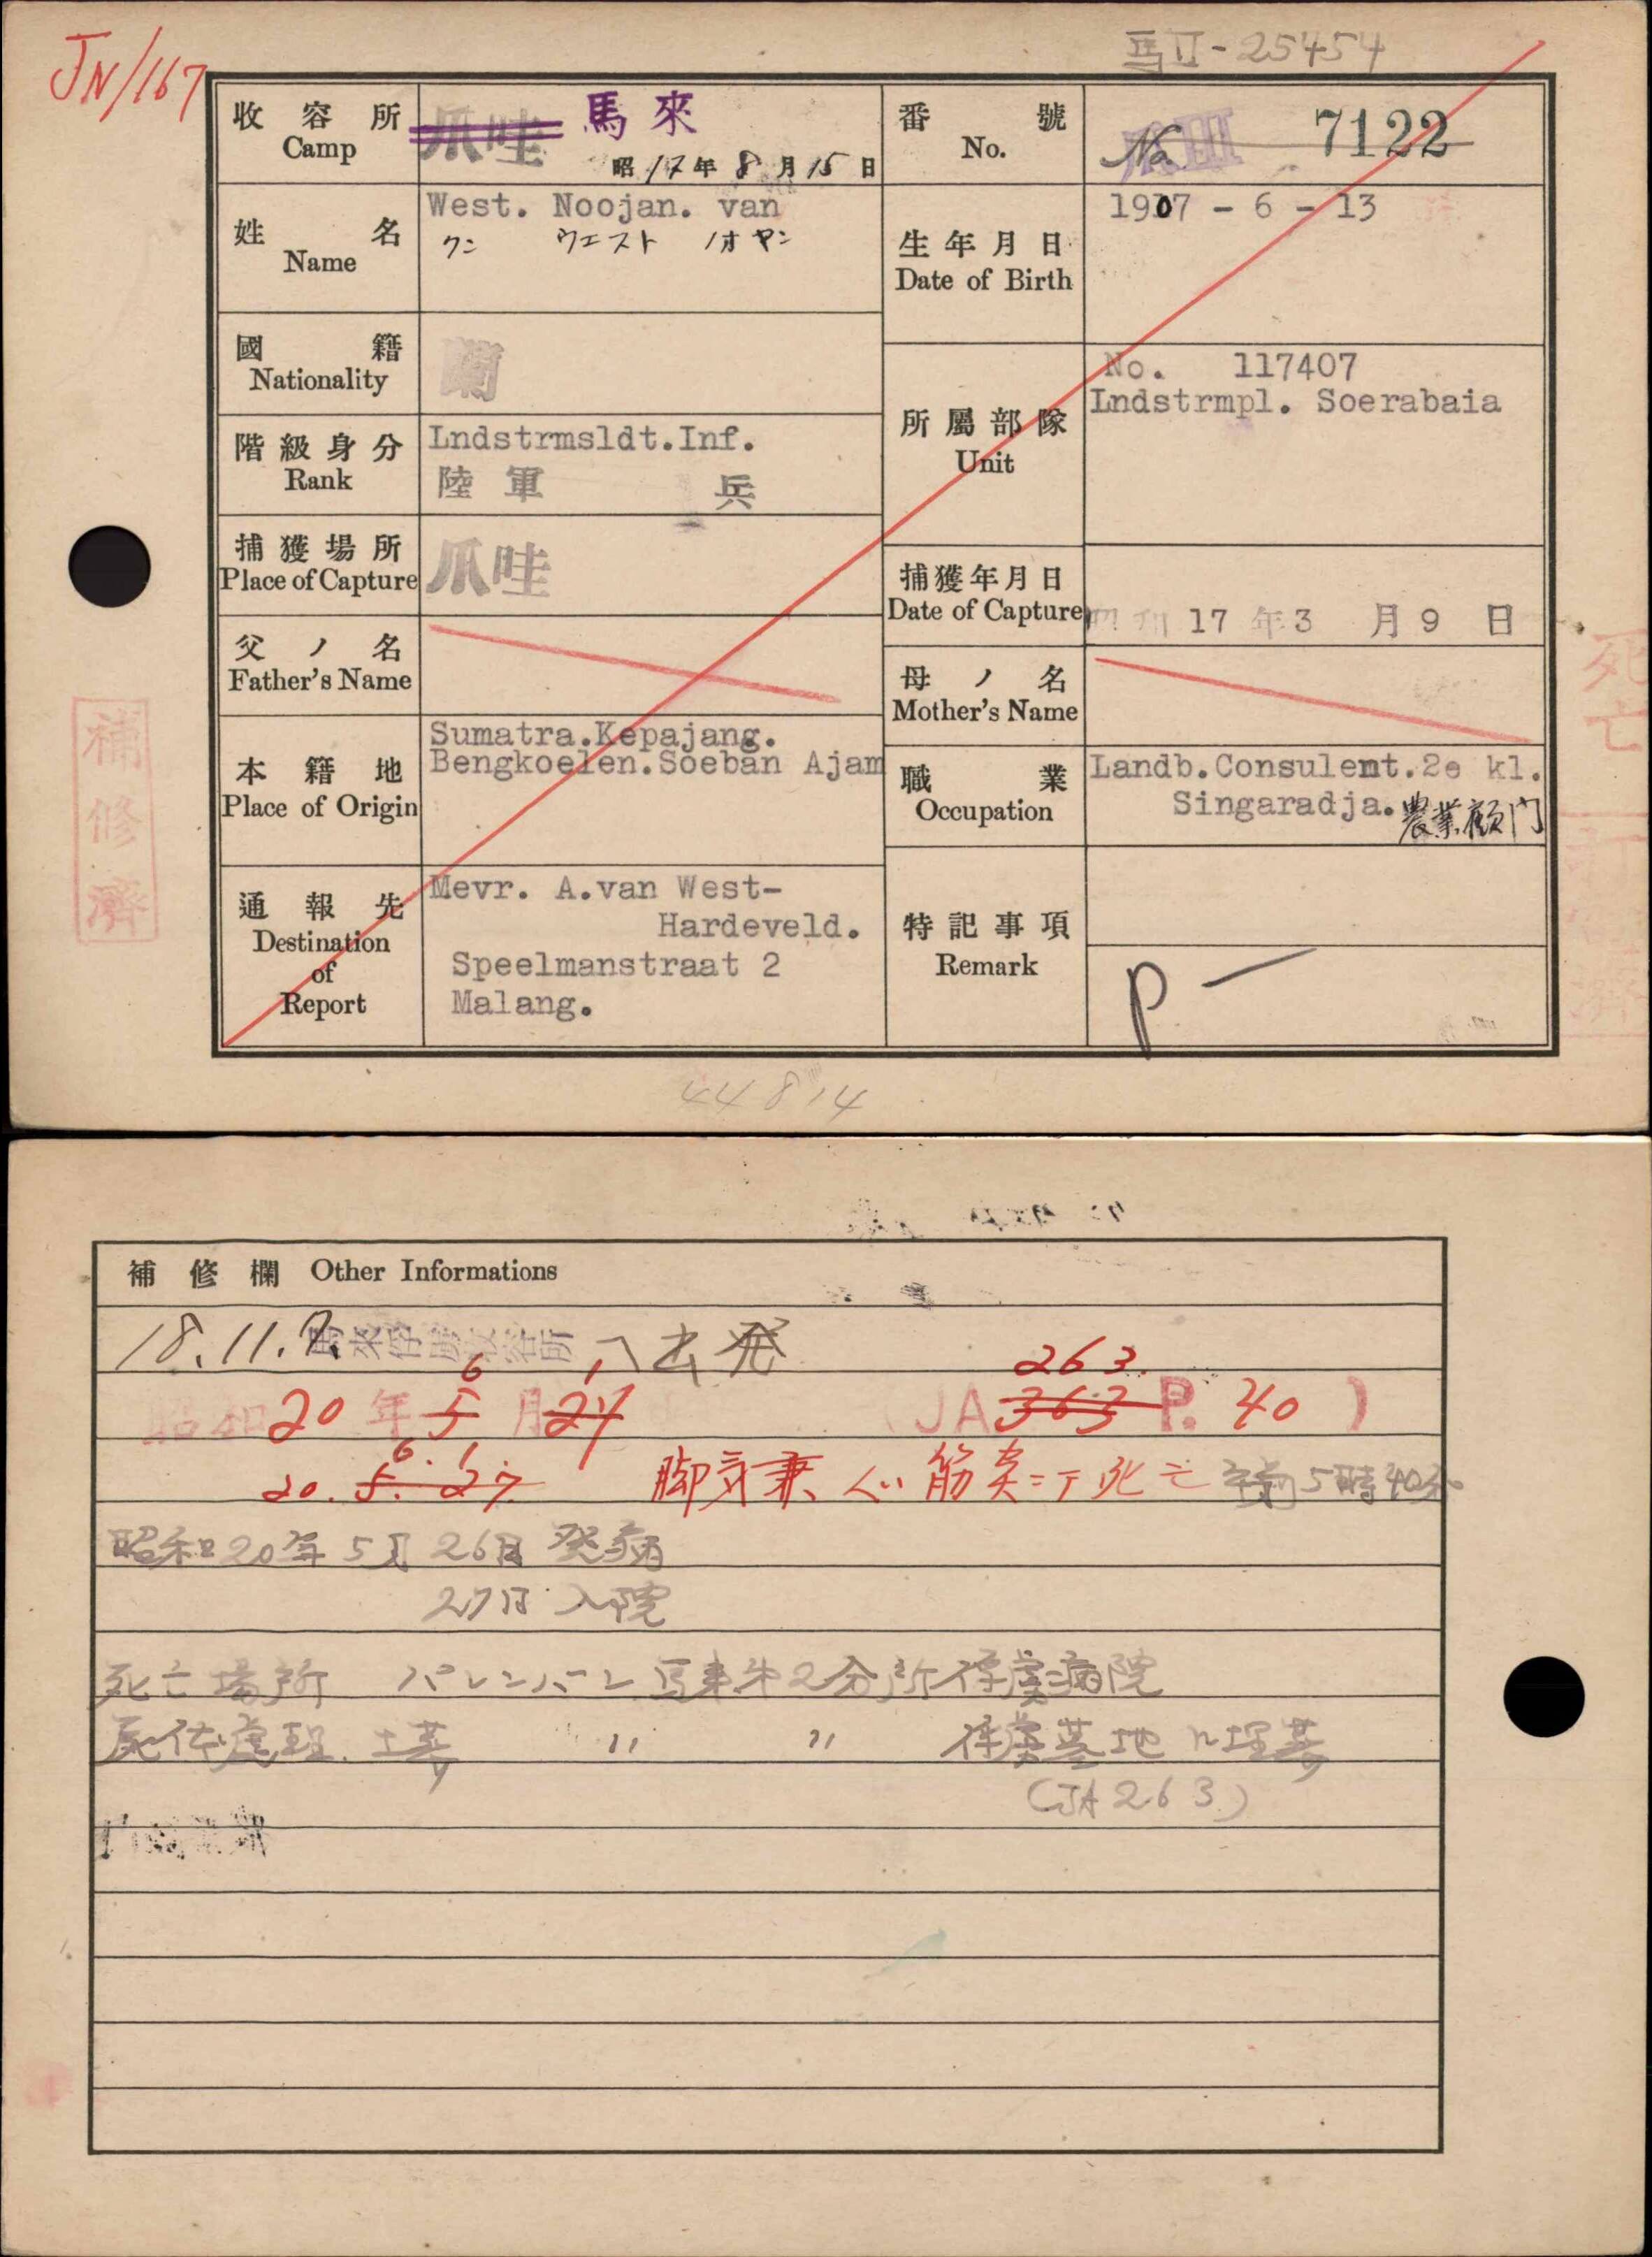 JN/167
馬II-25454
收容所 Camp
爪哇 馬來
昭17年8月15日
番號 No.
No 7122
姓名 Name
West. Noojan. van
ワン ウエスト ノオヤン
生年月日 Date of Birth
1907 - 6 - 13
國籍 Nationality
蘭
階級身分 Rank
Lndstrmsldt.Inf.
陸軍 兵
所屬部隊 Unit
No. 117407
Lndstrmpl. Soerabaia
捕獲場所 Place of Capture
爪哇
捕獲年月日 Date of Capture
昭和17年3月9日
父ノ名 Father's Name
母ノ名 Mother's Name
本籍地 Place of Origin
Sumatra.Kepajang.
Bengkoelen.Soeban Ajam
職業 Occupation
Landb.Consulent.2e kl.
Singaradja. 農業顧門
通報先 Destination of Report
Mevr. A.van West-
Hardeveld.
Speelmanstraat 2
Malang.
特記事項 Remark
P
補修濟
死亡
訂修濟
44814
補修欄 Other Informations
18.11.7. 馬來俘虜收容所へ出発
6 1 263
昭和20年5月24 (JA 363 P. 40)
6. 1.
20. 5. 27. 脚気兼 心筋炎ニテ死亡 午前5時40分
昭和20年5月26日 発病
27日 入院
死亡場所 パレンバン 馬来第2分所俘虜病院
死体處理 土葬 〃 〃 俘虜墓地ニ埋葬
(JA 263)